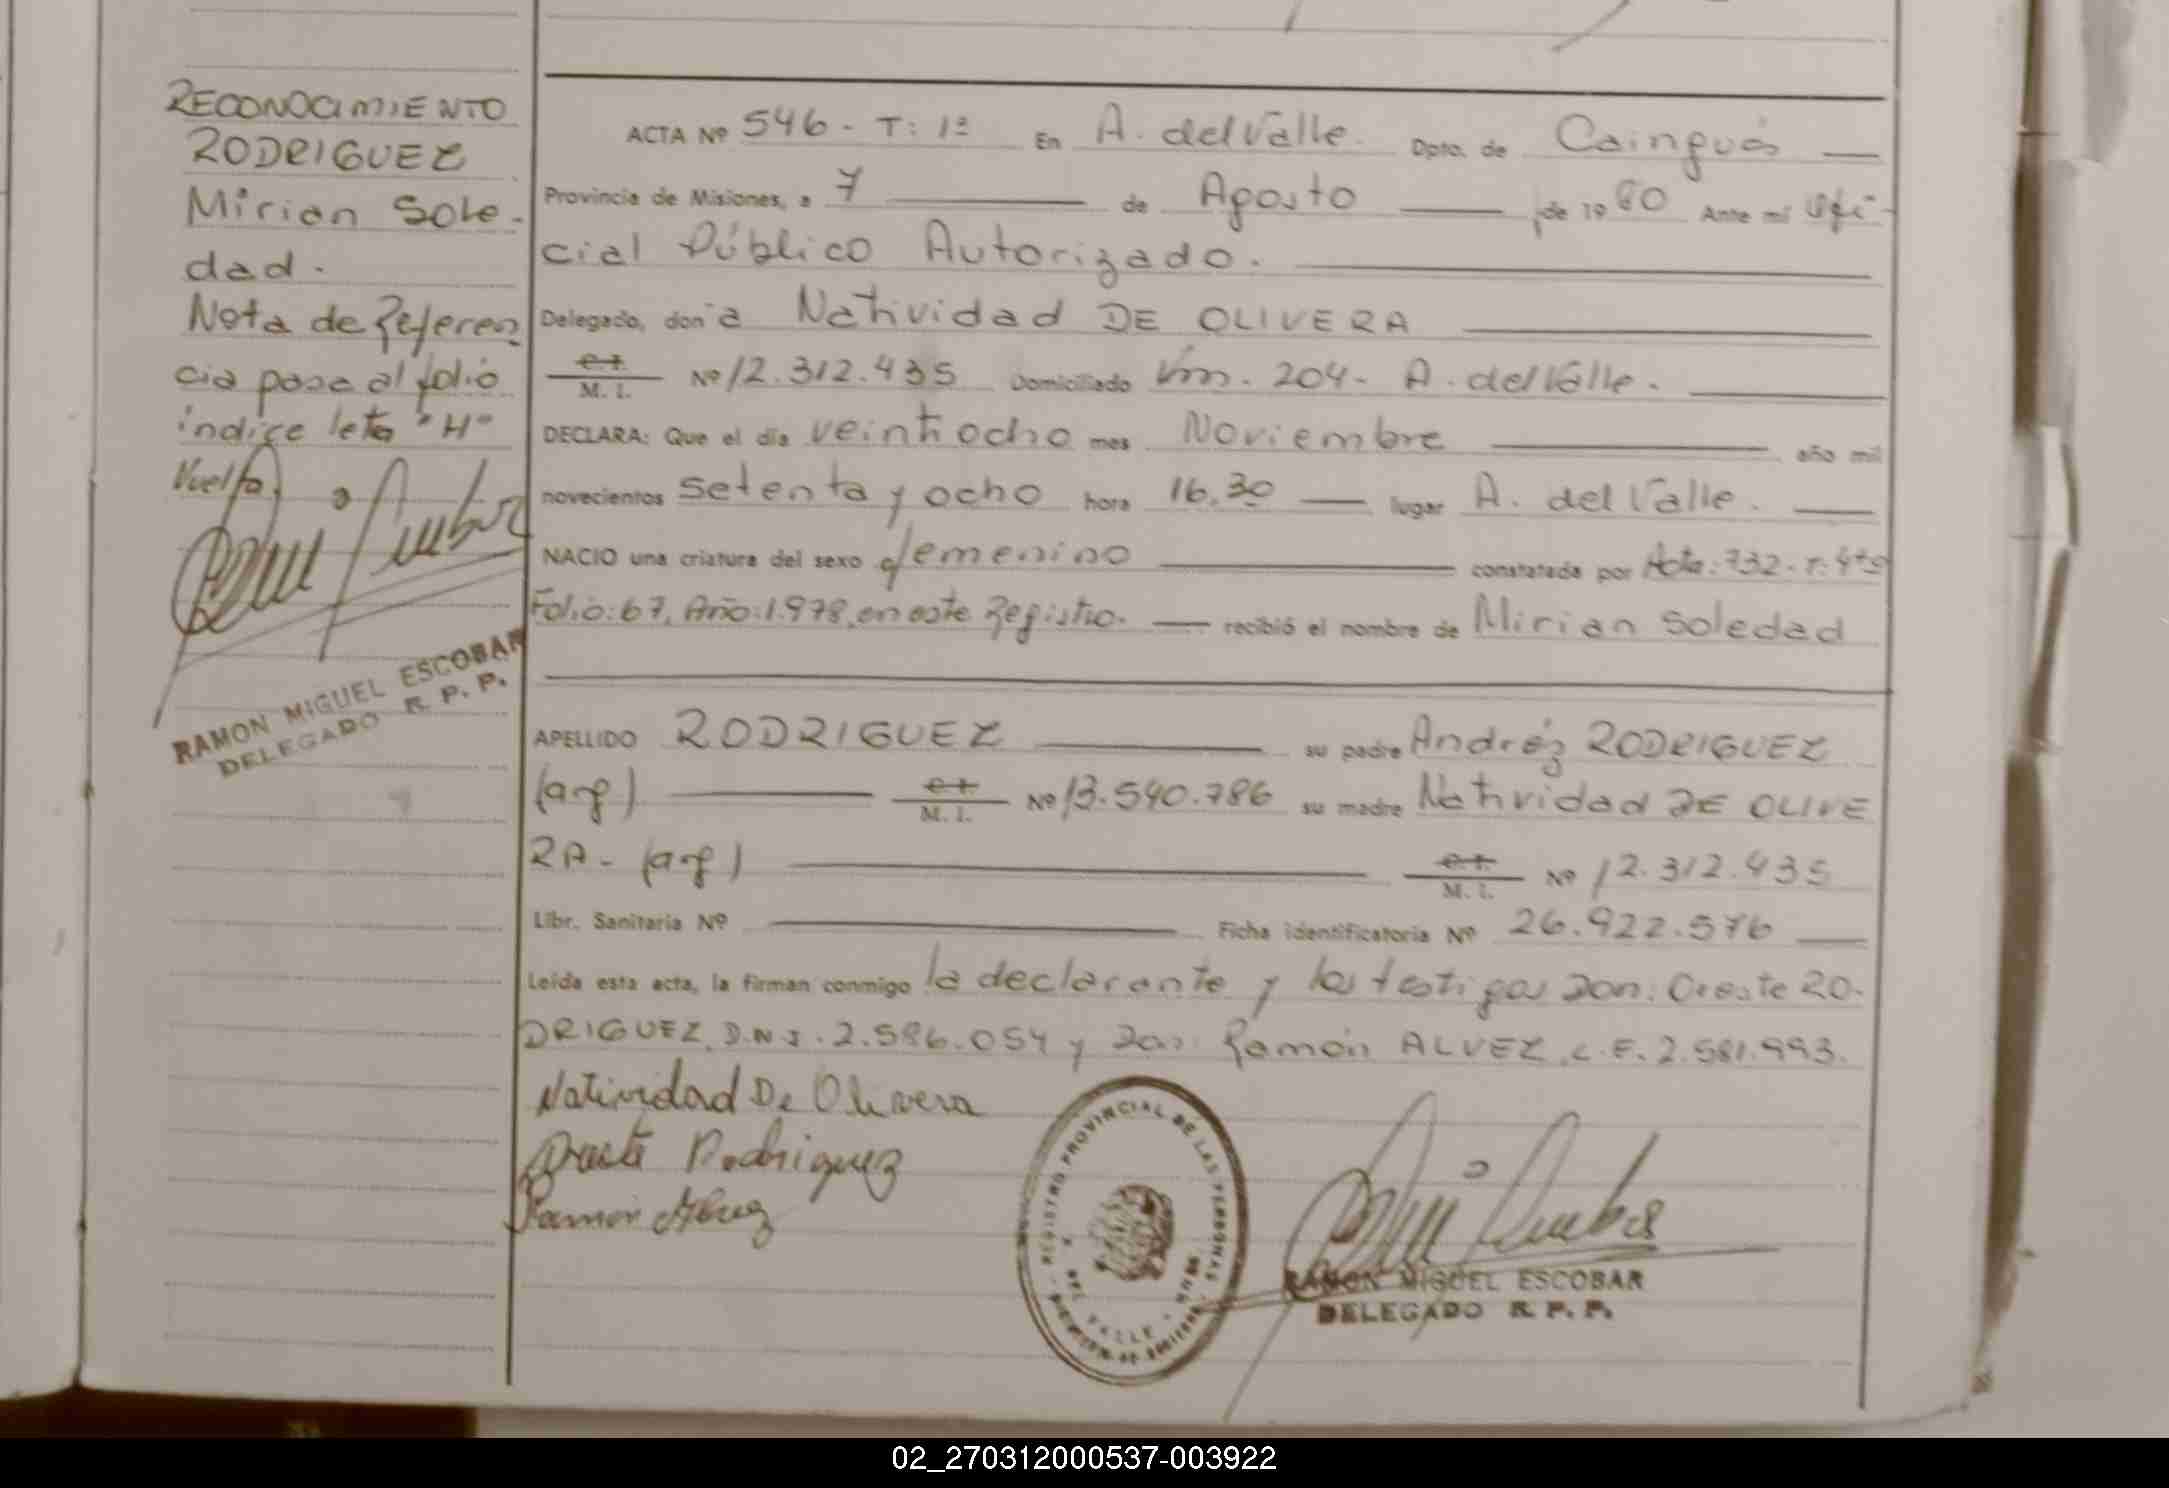 RECONOCIMIENTO
RODRIGUEZ
Mirian Sole-
dad.
Nota de Referen
cia pasa al folio
índice letra "H"
Vuelta
RAMON MIGUEL ESCOBAR
DELEGADO R. P. P.
ACTA Nº 546 - T: 1º En A. del Valle. Dpto. de Cainguás
Provincia de Misiones, a 7 de Agosto de 19 80 Ante mí Ofi-
cial Público Autorizado.
Delegado, don a Natividad DE OLIVERA
M. I. Nº 12.312.435 Domiciliado Km. 204 - A. del Valle.
DECLARA: Que el día veintiocho mes Noviembre año mil
novecientos setenta y ocho hora 16,30 lugar A. del Valle.
NACIO una criatura del sexo femenino constatada por Acta: 732 - T: 4to
Folio: 67, Año: 1.978, en este Registro. recibió el nombre de Mirian Soledad
APELLIDO RODRIGUEZ su padre Andréz RODRIGUEZ
(arg) M. I. Nº 13.540.786 su madre Natividad DE OLIVE
RA - (arg) M. I. Nº 12.312.435
Libr. Sanitaria Nº Ficha identificatoria Nº 26.922.576
Leída esta acta, la firman conmigo la declarante y los testigos Don: Oreste RO-
DRIGUEZ, D.N.I. 2.586.054 y Don: Ramón ALVEZ, L.E. 2.581.993.
Natividad De Olivera
Oreste Rodriguez
Ramon Alvez
REGISTRO PROVINCIAL DE LAS PERSONAS
DEL VALLE
RAMON MIGUEL ESCOBAR
DELEGADO R. P. P.
02_270312000537-003922